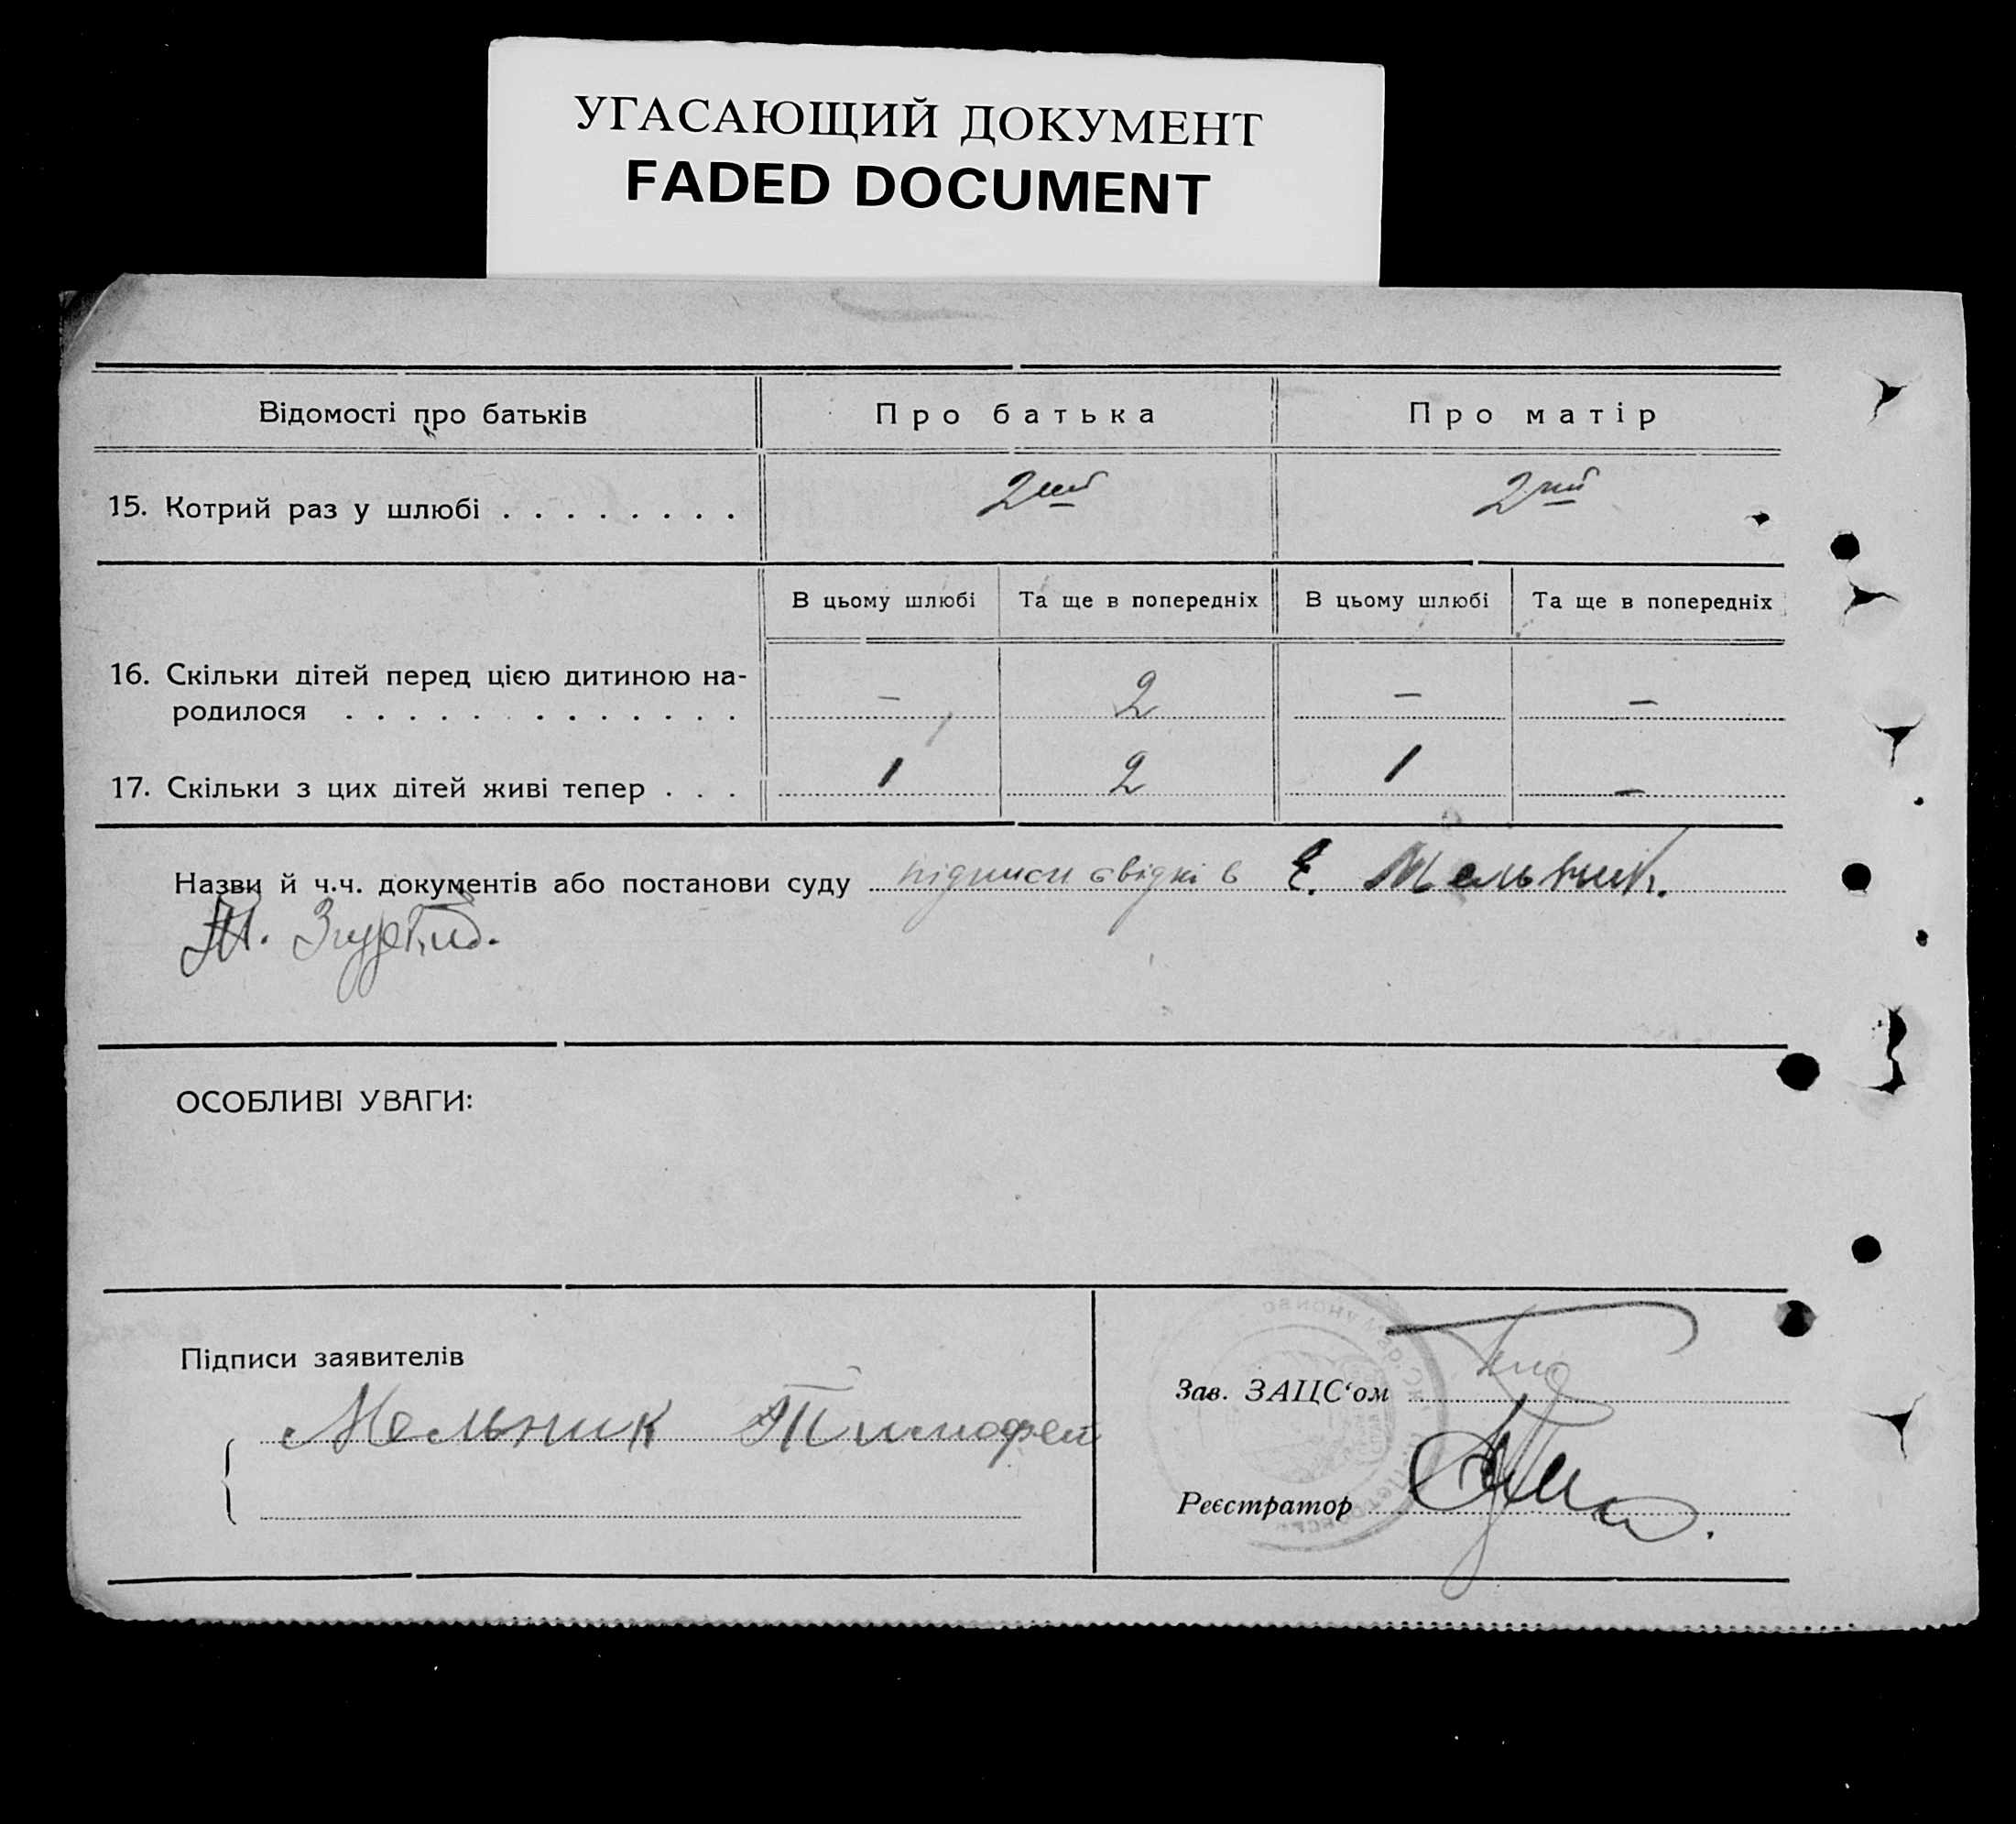 УГАСАЮЩИЙ ДОКУМЕНТ
FADED DOCUMENT
Відомості про батьків Про батька Про матір
15. Котрий раз у шлюбі . . . . . . . . 2ий 2ий
В цьому шлюбі Та ще в попередніх В цьому шлюбі Та ще в попередніх
16. Скільки дітей перед цією дитиною на-
родилося . . . . . . . . . . . . . — 2 — —
17. Скільки з цих дітей живі тепер . . . 1 2 1 —
Назви й ч.ч. документів або постанови суду підписи свідків Е. Мельник.
ОСОБЛИВІ УВАГИ:
Підписи заявителів
Зав. ЗАЦС‘ом
Мельник Тимофей
Реєстратор